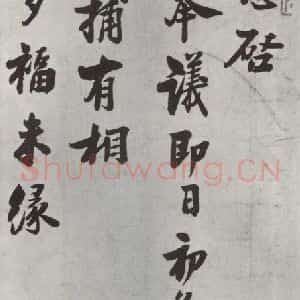 启
奉議即日初
捕有相
福未緣
Shufawang.CN